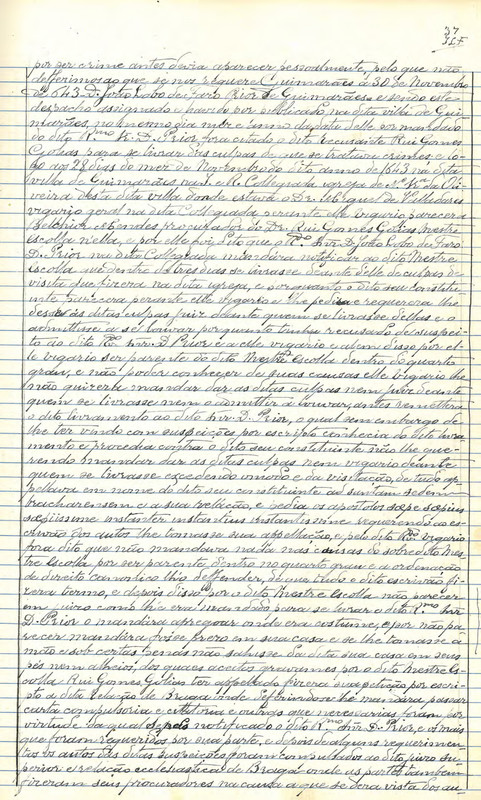 37
por ser crime antes devia aparecer pessoalmente, pelo que não
defferimos ao que se nos requere Guimarães a 30 de Novembro
de 1643 D. João Lobo de Faro Prior de Guimarães e sendo este
despacho assignado e havido por publicado, na dita villa de Gui-
marães, no mesmo dia mez e anno da data delle por mandado
do dito R.mo Sr. D. Prior, fora citado o dito recusante Rui Gomes
Golias para se livrar das culpas de que se tratava crimes e lo-
go aos 28 dias do mez de Novembro do dito anno de 1643 na dita
villa de Guimarães na R. Collegiada igreja de N.ª Sr.ª da Oli-
veira desta dita villa donde estava o Dr.
vigario geral na dita Collegiada perante elle vigario parecera
Belchior Mendes procurador do Dr. Rui Gomes Golias, mestre
escolla n'ella, e por elle foi dito que o R.mo Snr. D. João Lobo de Faro
D. Prior na dita Collegiada mandára notificar ao dito Mestre
Escolla que dentro de tres dias se livrasse deante delle de culpas de
visita que fizera na dita igreja, e porquanto o dito seu constitu-
inte parecera perante elle vigario e lhe pedira e requerera lhe
desse as ditas culpas juiz deante quem se livrasse dellas e o
admittisse a se livrar porquanto tinha recusado de suspei-
to ao dito R.mo Snr. D. Prior e a elle vigario e alem disso por el-
le vigario ser parente do dito Mestre Escolla dentro do quarto
grau, e não poder conhecer de suas causas elle vigario lhe
não quizera mandar dar as ditas culpas nem juiz deante
quem se livrasse nem o admittir a livrar, antes remettera
o dito livramento ao dito Snr. D. Prior, o qual sem embargo de
lhe ter vindo com suspeições por escripto conhecia do dito livra-
mento e procedia contra o dito seu constituinte não lhe que-
rendo mandar dar as ditas culpas nem vigario deante
quem se livrasse excedendo o modo e da visitação, de tudo ap-
pellava em nome do dito seu constituinte ad suntam sedem
bracharensem e a sua relação, e pedia os apostolos sæpe sæpius
sæpissime instanter instantius instantissime requerendo ao es-
crivão dos autos lhe tomasse sua appellação, e pelo dito R.do vigario
fora dito que não mandava nada nas causas do sobredito Mes-
tre Escolla por ser parente dentro no quarto grau e a ordenação
de direito canonico lhe deffender, de que tudo o dito escrivão fi-
zera termo, e depois disso por o dito Mestre Escolla não parecer
em juizo como lhe era mandado para se livrar o dito R.mo Snr.
D. Prior o mandára apregoar onde era costume, e por não pa-
recer mandára fosse prezo em sua casa e se lhe tomasse a
mão e sob certas penas não sahisse da dita sua casa em seus
pés nem alheios, dos quaes aceitos gravames por o dito Mestre Es-
colla Rui Gomes Golias ter appellado fizera sua petição por escri-
pto a dita relação de Braga onde defferindo-se lhe mandára passar
carta compulsoria e citatoria e outras que necessarias foram por
virtude da qual sendo notificado o dito R.mo Snr. D. Prior, e os mais
que foram requeridos por sua parte, e depois de alguns requerimen-
tos os autos das ditas suspeições foram compulsados ao dito juizo su-
perior e relação ecclesiastica de Braga onde as partes tambem
fizeram seus procuradores na causa a que se dera vista dos au-